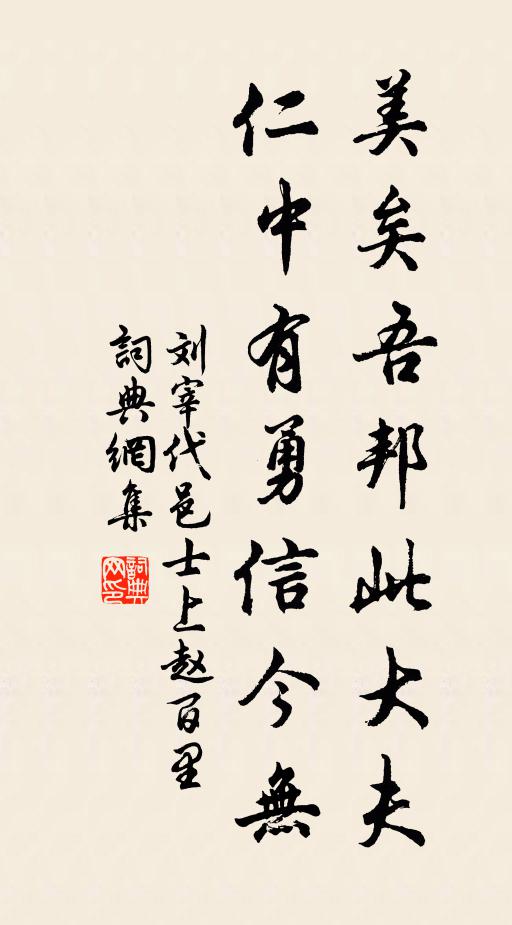 美矣吾邦此大夫
仁中有勇信今無
刘宰代邑士上赵百里
詞典網集
詞典
网印